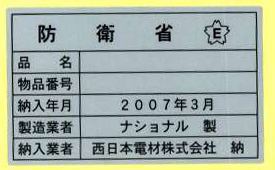 防衛省 E
品名
物品番号
納入年月 2007年3月
製造業者 ナショナル 製
納入業者 西日本電材株式会社 納